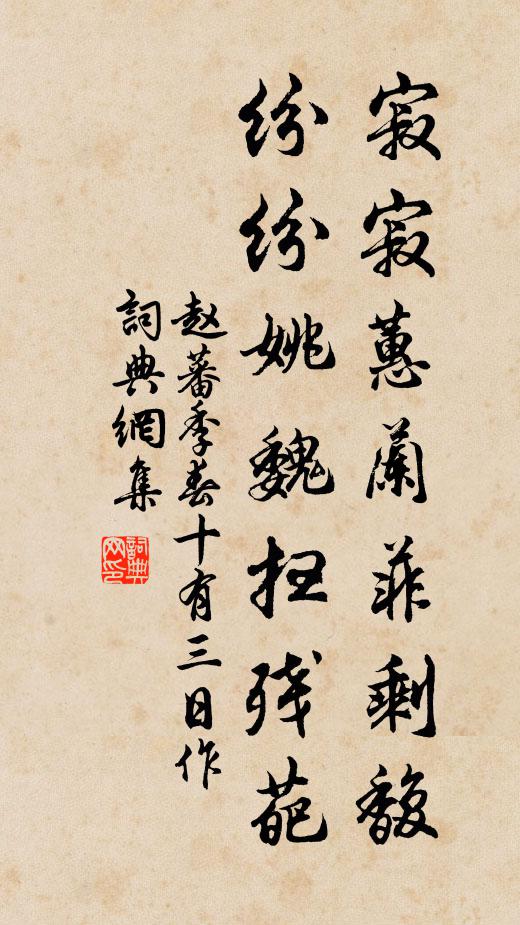 寂寂蕙蘭菲剩馥
纷纷姚魏抂残葩
赵蕃季春十有三日作
詞典網集
詞典网印